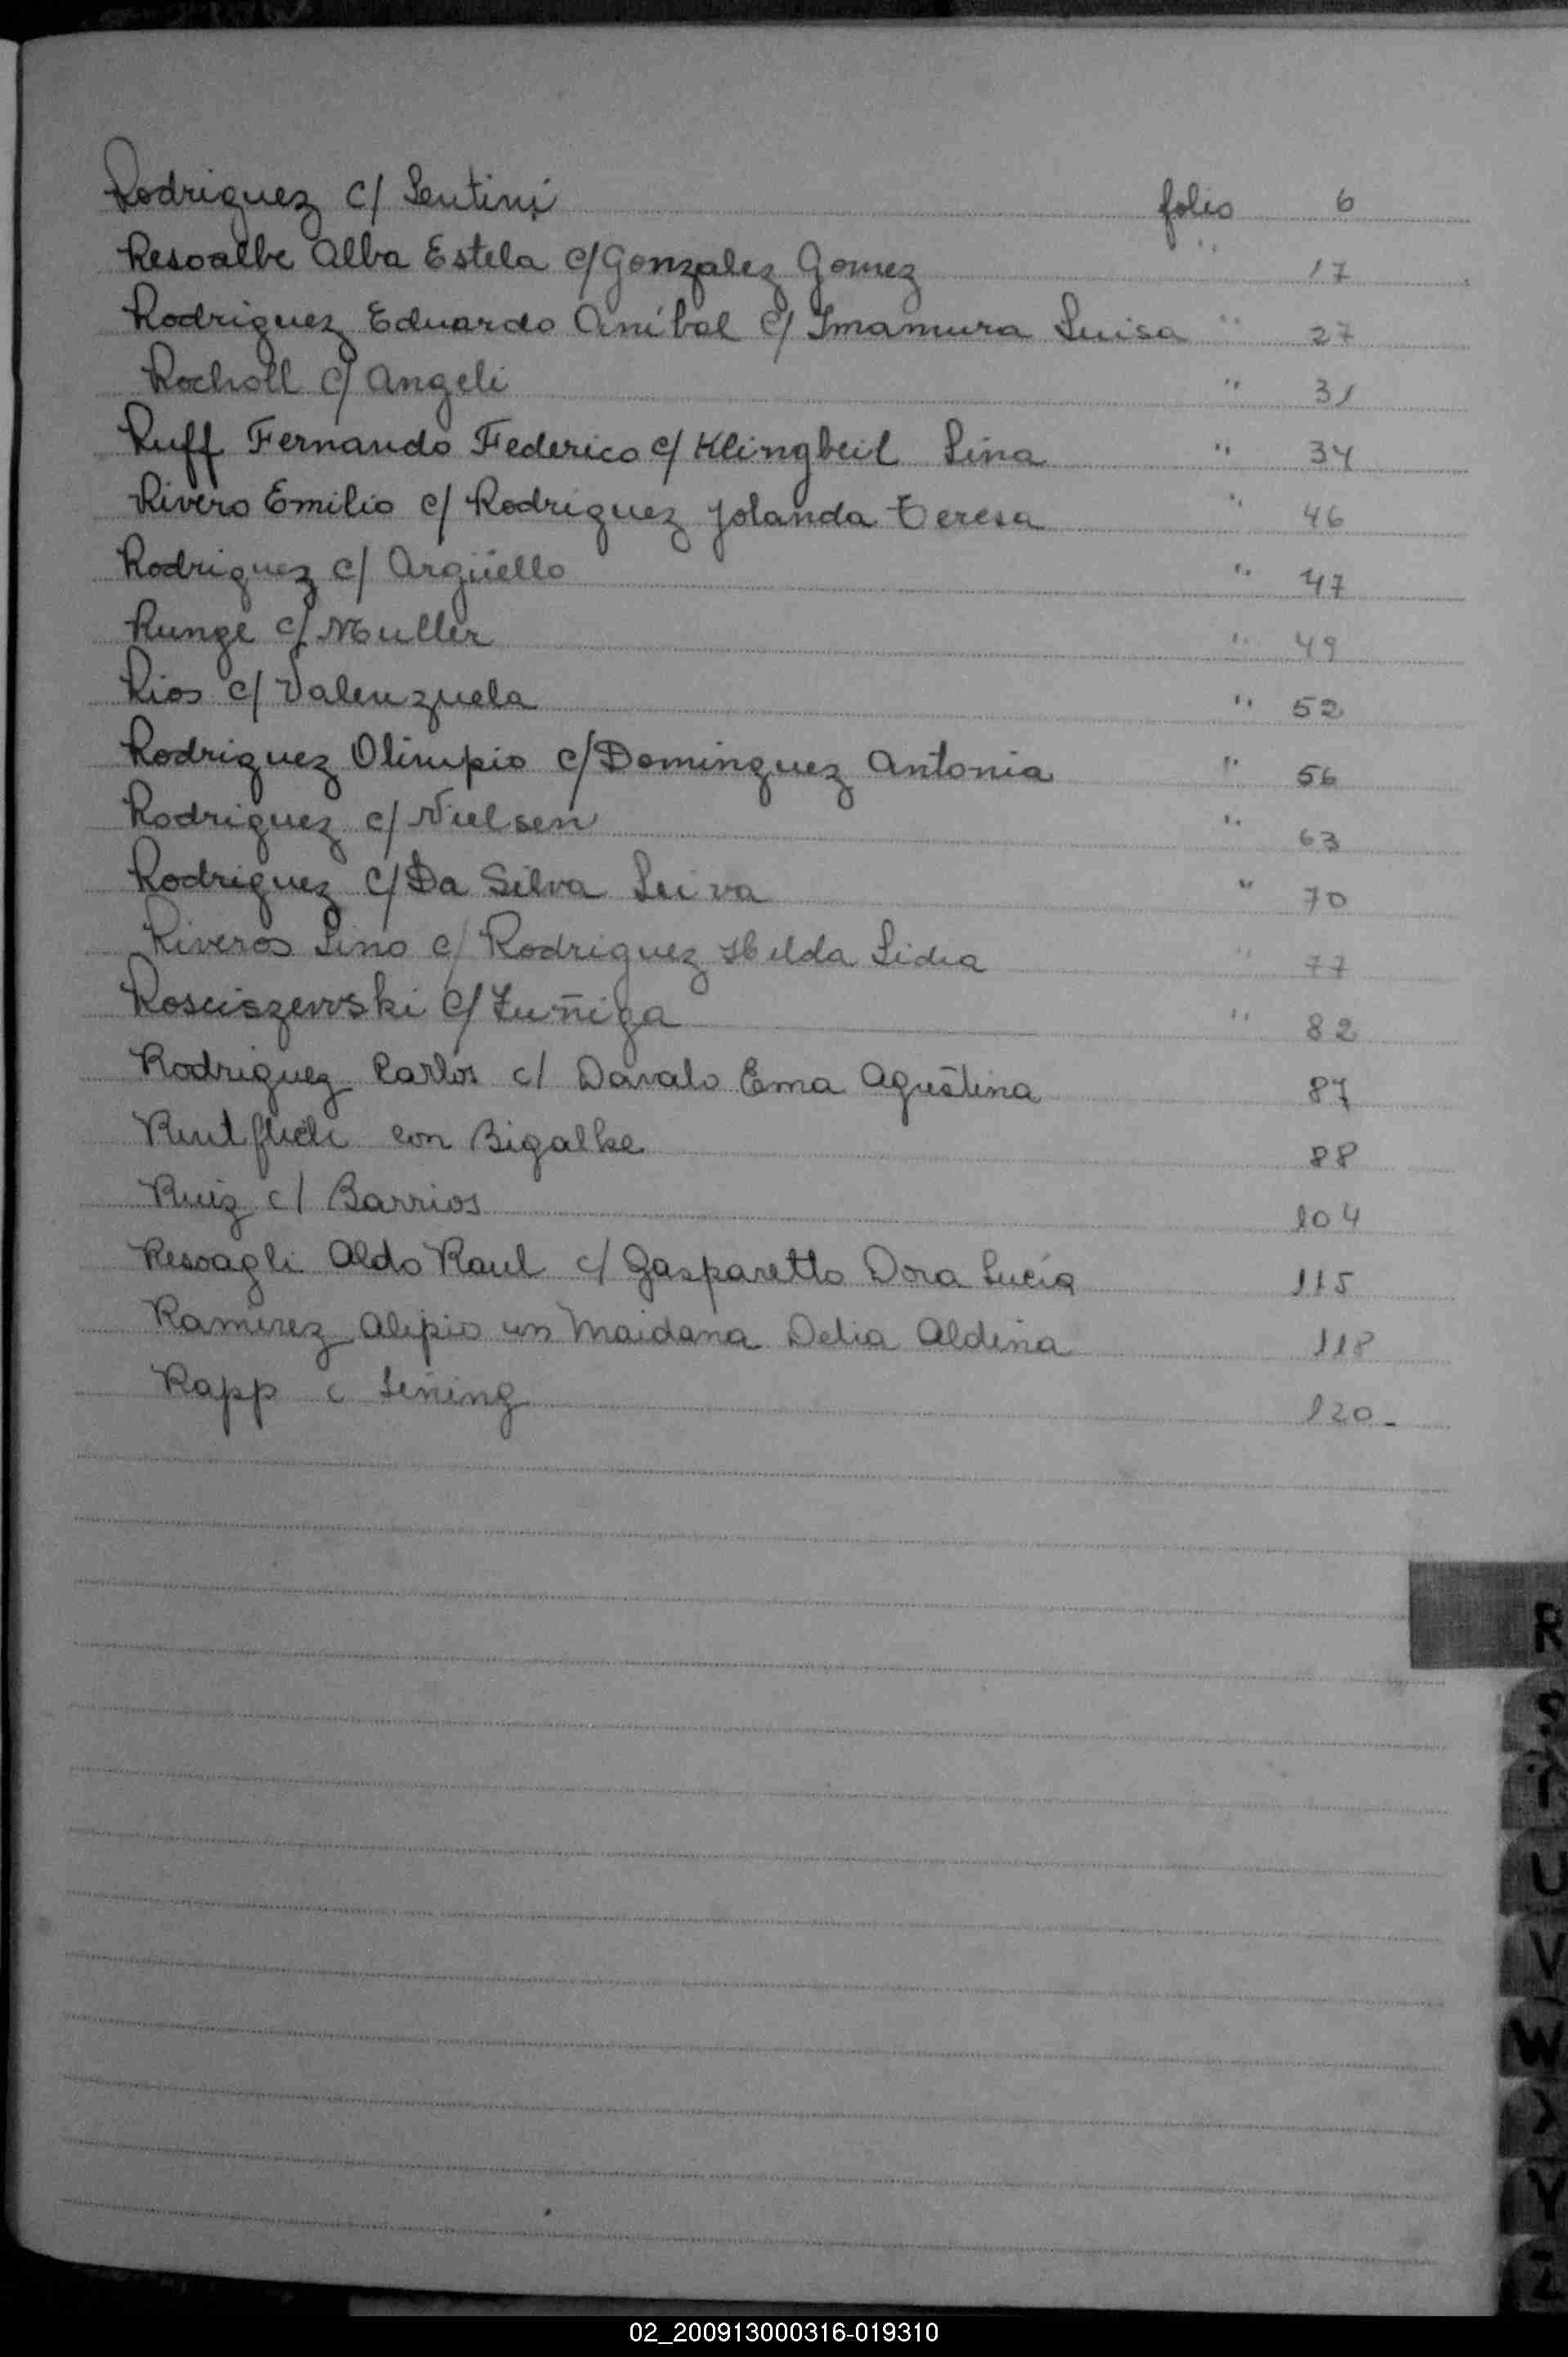 Rodriguez c/ Sentini folio 6
Resoalbe Alba Estela c/ Gonzalez Gomez " 17
Rodriguez Eduardo Aníbal c/ Imamura Luisa " 27
Rocholl c/ Angeli " 31
Ruff Fernando Federico c/ Klingbeil Lina " 34
Rivero Emilio c/ Rodriguez Yolanda Teresa " 46
Rodriguez c/ Argüello " 47
Runge c/ Muller " 49
Rios c/ Valenzuela " 52
Rodriguez Olimpio c/ Dominguez Antonia " 56
Rodriguez c/ Nielsen " 63
Rodriguez c/ Da Silva Leiva " 70
Riveros Lino c/ Rodriguez Hilda Lidia " 77
Rosciszewski c/ Zuñiga " 82
Rodriguez Carlos c/ Davalo Ema Agustina 87
con Bigalke 88
Ruiz c/ Barrios 104
Resoagli Aldo Raul c/ Gasparetto Dora Lucía 115
Ramirez Alipio con Maidana Delia Aldina 118
Rapp c 120-
R
S
T
U
V
W
X
Y
Z
02_200913000316-019310